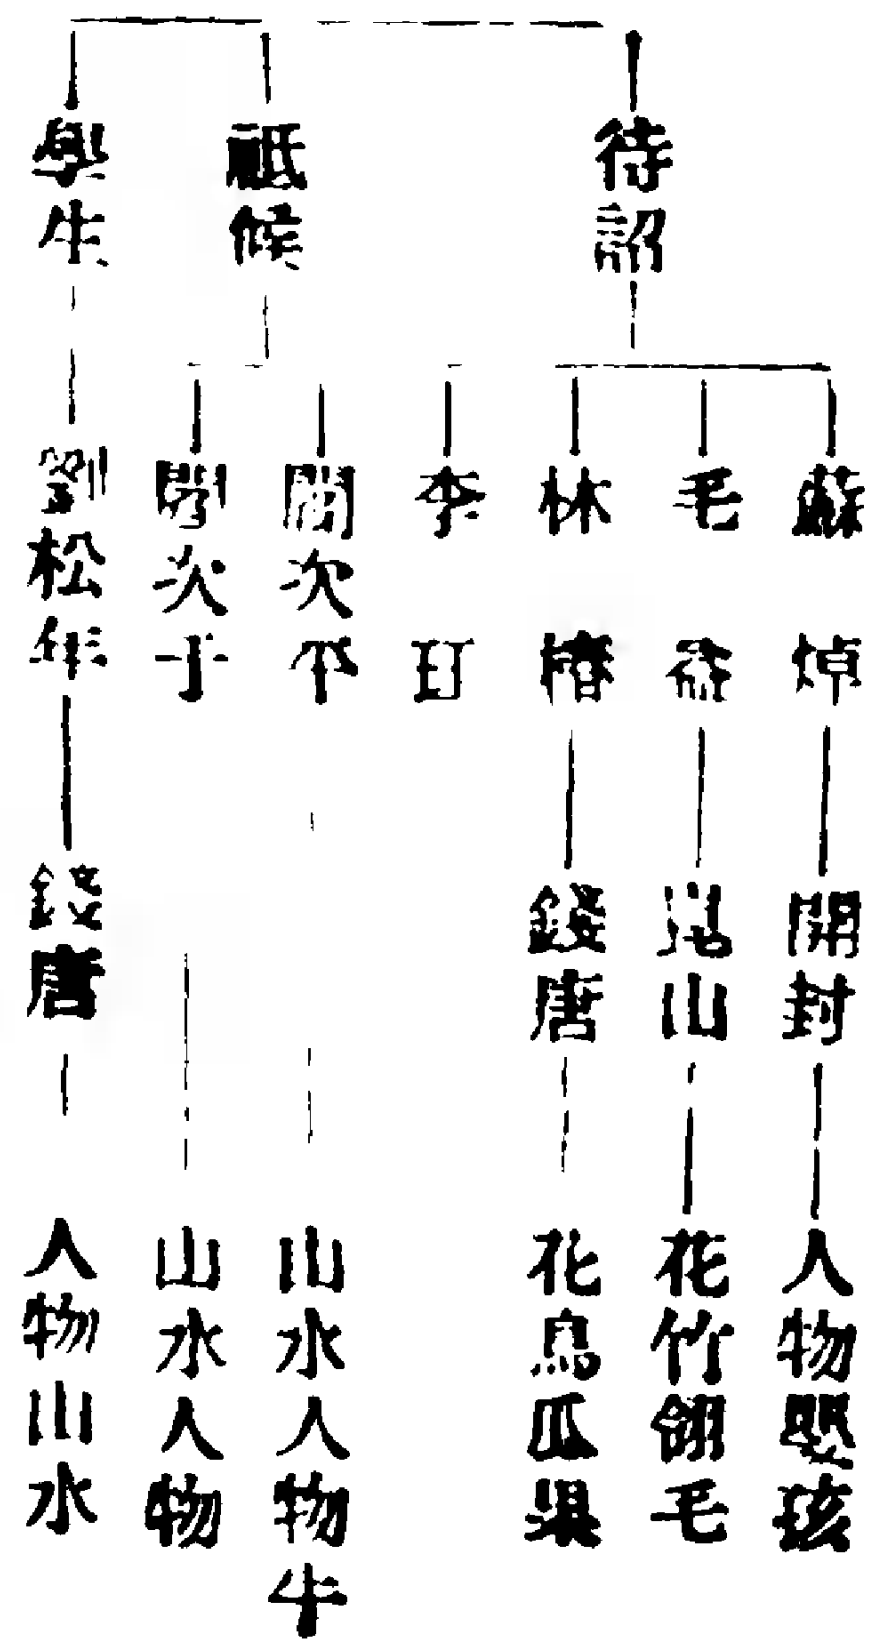 待詔
祗候
學生
蘇焯
開封
人物嬰孩
毛益
昆山
花竹翎毛
林椿
錢唐
花鳥瓜果
李
閻次平
山水人物牛
閻次于
山水人物
劉松年
錢唐
人物山水